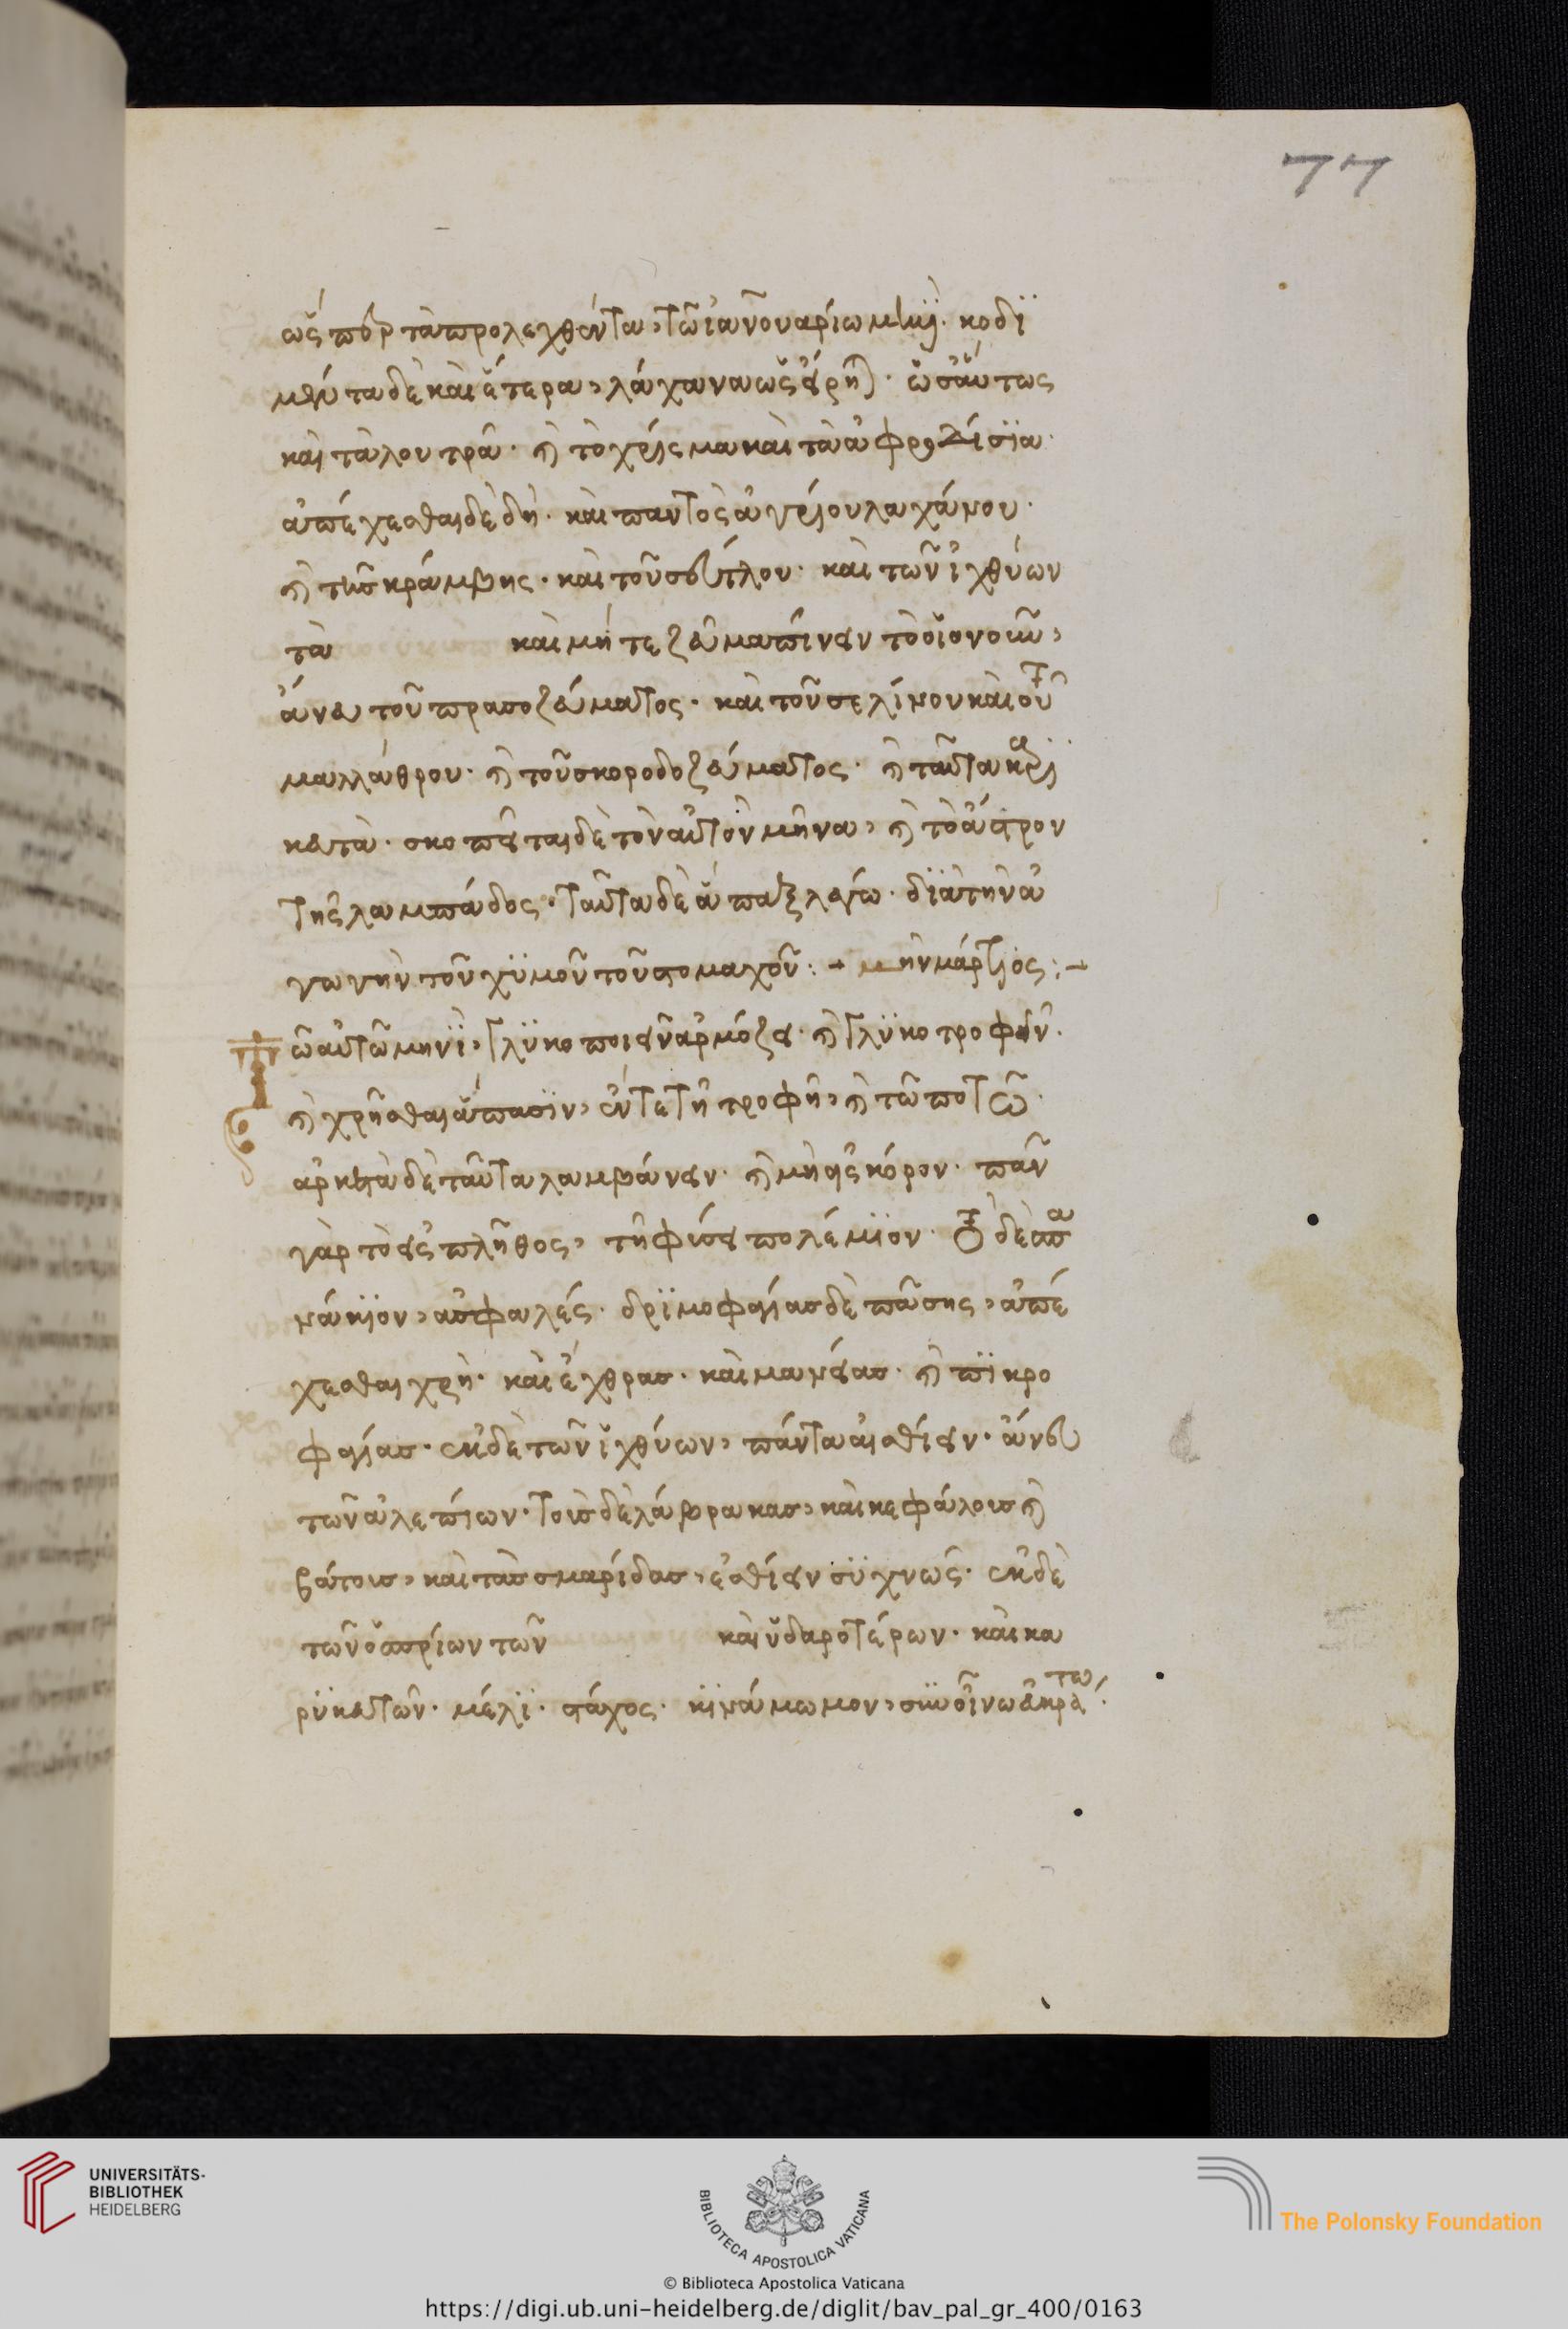 77
ὥσπερ τὰ προλεχθέντα, τῶ ἰαννουαρίω μηνί. κοδί
μεντα δὲ καὶ ἕτερα, λάχανα ὡς εἴρηται. ὡσαύτως
καὶ τὰ λουτρὰ. καὶ τὸ χρίσμα καὶ τὰ ἀφροδίσϊα.
ἀπέχεσθαι δὲ δεῖ. καὶ παντὸς ἀγρίου λαχάνου.
καὶ τῆς κράμβης. καὶ τοῦ σεύτλου. καὶ τῶν ἰχθύων
τὰ καὶ μήτε ζεῦμα πίνειν τὸ οἷον οὖν,
ἄνευ τοῦ πρασοζεύματος. καὶ τοῦ σελίνου καὶ τοῦ
μαλλάθρου. καὶ τοῦ σκοροδοζεύματος. καὶ ταῦτα
σκοπεῖται δὲ τὸν αὐτὸν μῆνα, καὶ τὸ ἄστρον
τῆς λαμπάδος. ταῦτα δὲ ἅπαξ λέγω. διὰ τὴν ἀ
γωγὴν τοῦ χϋμοῦ τοῦ στομαχοῦ: μὴν μάρτιος:
Τῶ αὐτῶ μηνῒ, γλϋκοποιεῖν ἁρμόζει. καὶ γλϋκοτροφεῖν.
καὶ χρῆσθαι ἅπασϊν, ἔν τε τῇ τροφῇ, καὶ τῶ ποτῶ.
ἀρκετὰ δὲ ταῦτα λαμβάνειν. καὶ μὴ εἰς κόρον. πᾶν
γὰρ τὸ εἰς πλῆθος, τῇ φύσει πολέμϊον. τὸ δὲ σπα
νάκϊον, ἀσφαλές. δρϊμοφαγίας δὲ πάσης, ἀπέ
χεσθαι χρὴ. καὶ ἔχθρας. καὶ μανείας. καὶ πϊκρο
φαγίας. ἐκ δὲ τῶν ἰχθύων, πάντα αἰσθίειν. ἄνευ
τῶν ἀλεπίων. τοὺς δὲ λάβρακας, καὶ κεφάλους καὶ
βάτους, καὶ τὰς σμαρίδας, ἐσθίειν σϋχνῶς. ἐκ δὲ
τῶν ὀσπρίων τῶν καὶ ὑδαροτέρων. καὶ κα
ρϋκευτῶν. μέλϊ. στάχος. κϊνάμωμον, σὺν οἴνω ἀκράτω.
UNIVERSITÄTS-
BIBLIOTHEK
HEIDELBERG
BIBLIOTECA APOSTOLICA VATICANA
The Polonsky Foundation
© Biblioteca Apostolica Vaticana
https://digi.ub.uni-heidelberg.de/diglit/bav_pal_gr_400/0163